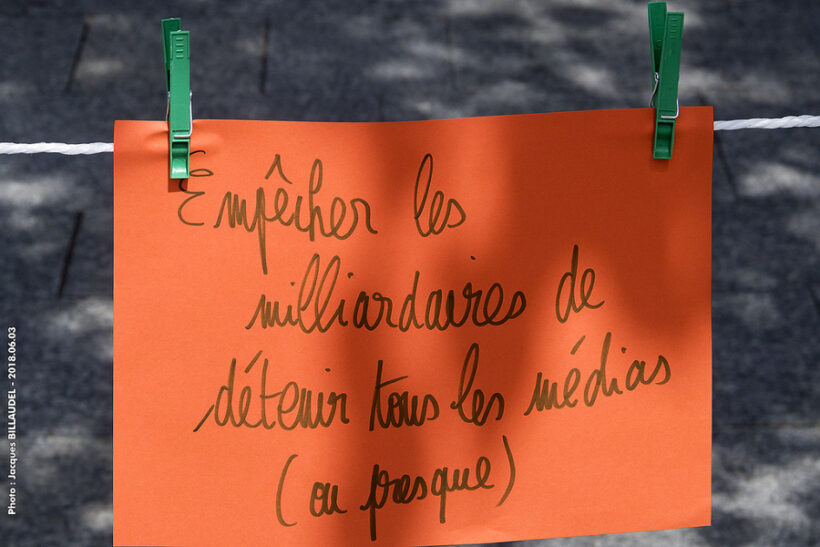 Empêcher les
milliardaires de
détenir tous les médias
(ou presque)
Photo : Jacques BILLAUDEL - 2018.06.03